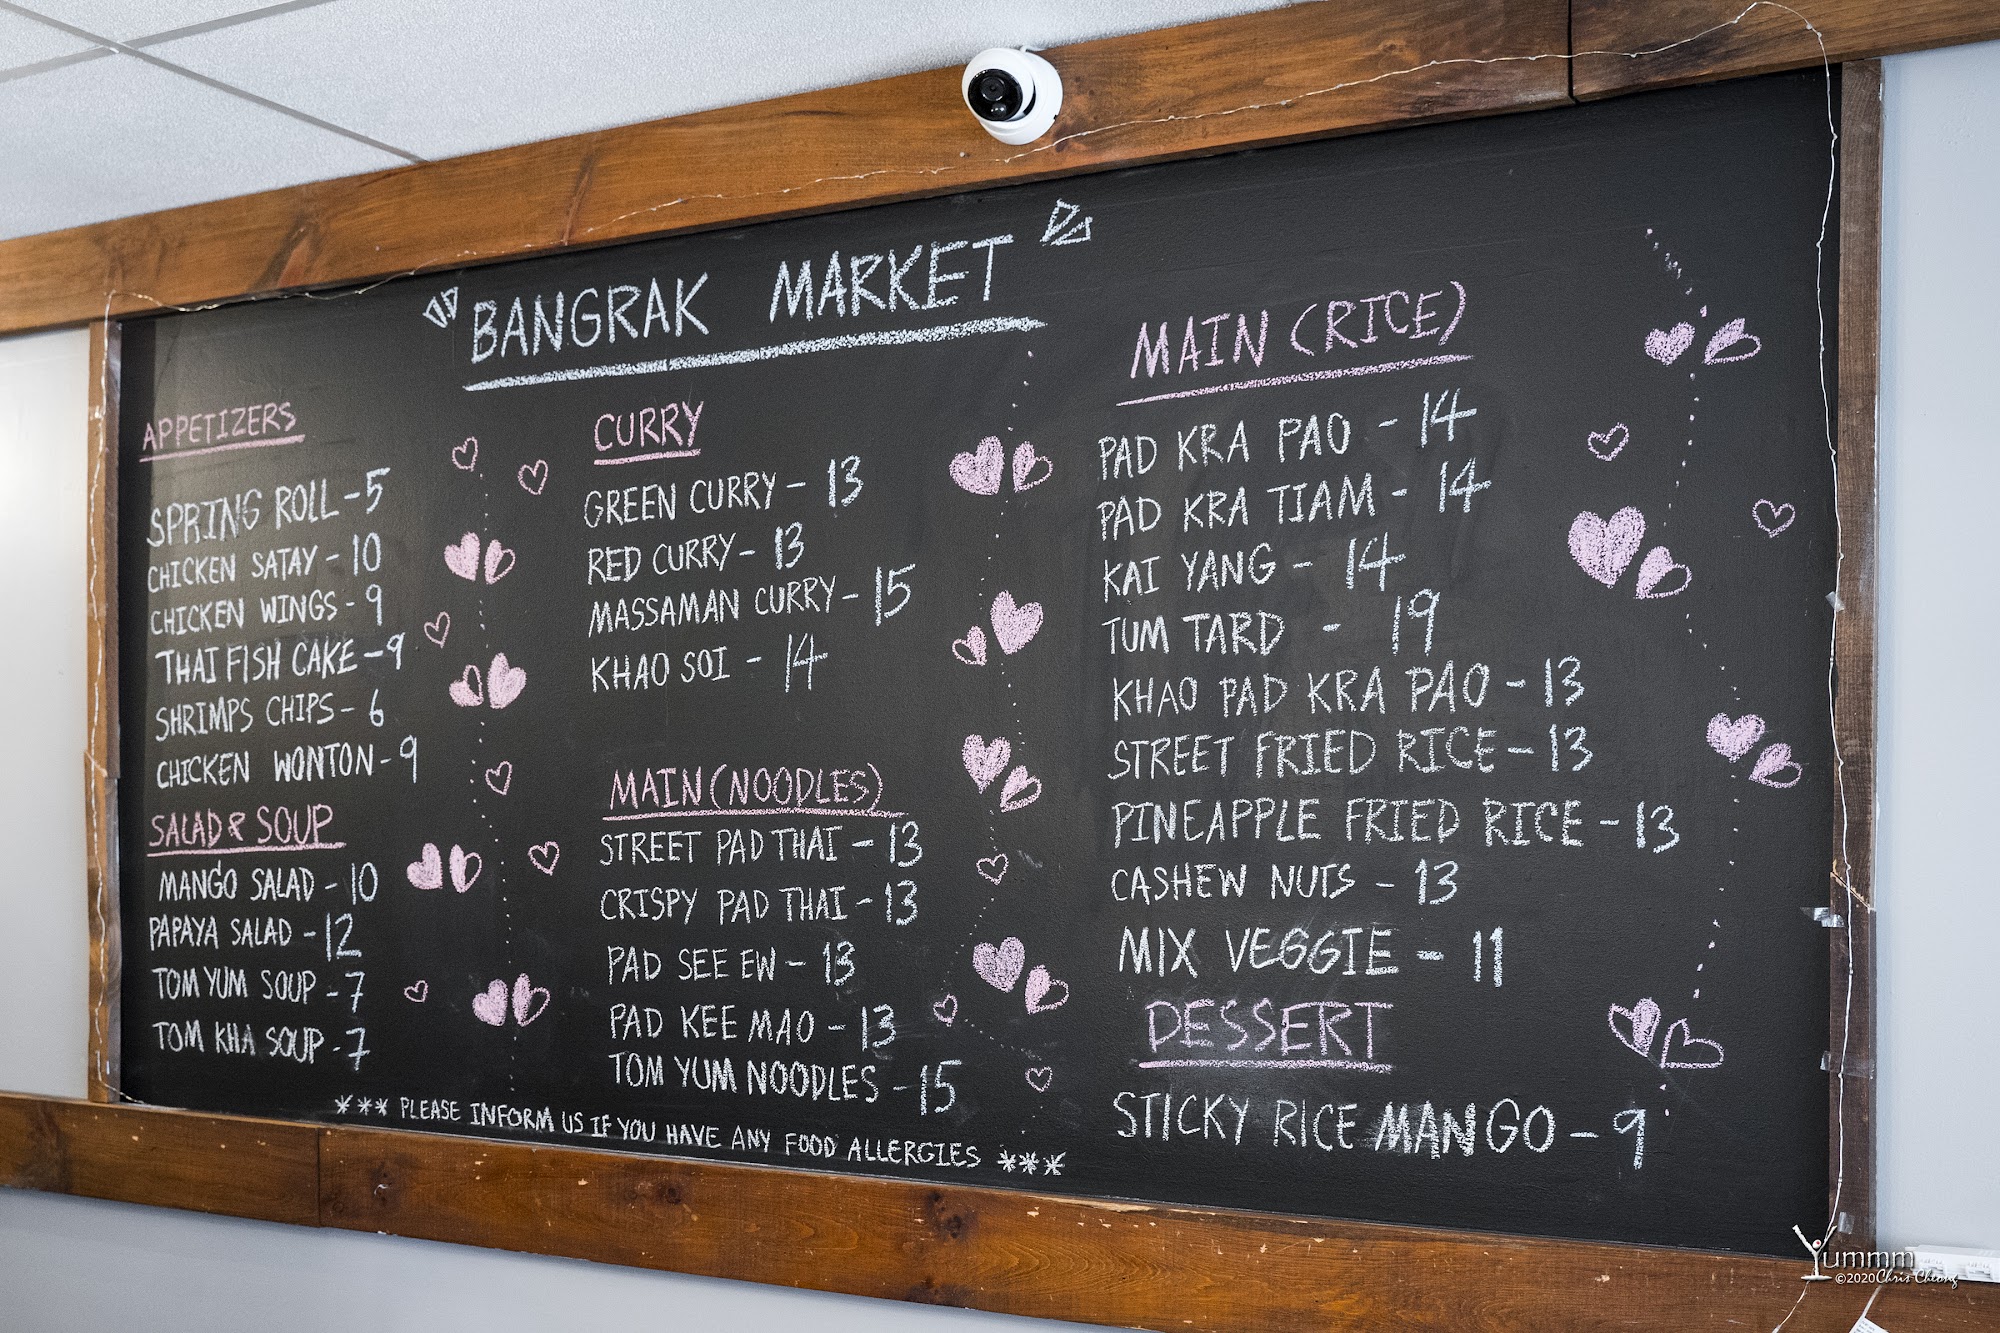 BANGRAK MARKET
APPETIZERS
SPRING ROLL - 5
CHICKEN SATAY - 10
CHICKEN WINGS - 9
THAI FISH CAKE - 9
SHRIMPS CHIPS - 6
CHICKEN WONTON - 9
SALAD & SOUP
MANGO SALAD - 10
PAPAYA SALAD - 12
TOM YUM SOUP - 7
TOM KHA SOUP - 7
CURRY
GREEN CURRY - 13
RED CURRY - 13
MASSAMAN CURRY - 15
KHAO SOI - 14
MAIN (NOODLES)
STREET PAD THAI - 13
CRISPY PAD THAI - 13
PAD SEE EW - 13
PAD KEE MAO - 13
TOM YUM NOODLES - 15
MAIN (RICE)
PAD KRA PAO - 14
PAD KRA TIAM - 14
KAI YANG - 14
TUM TARD - 19
KHAO PAD KRA PAO - 13
STREET FRIED RICE - 13
PINEAPPLE FRIED RICE - 13
CASHEW NUTS - 13
MIX VEGGIE - 11
DESSERT
STICKY RICE MANGO - 9
*** PLEASE INFORM US IF YOU HAVE ANY FOOD ALLERGIES ***
Yummm
©2020 Chris Cheong